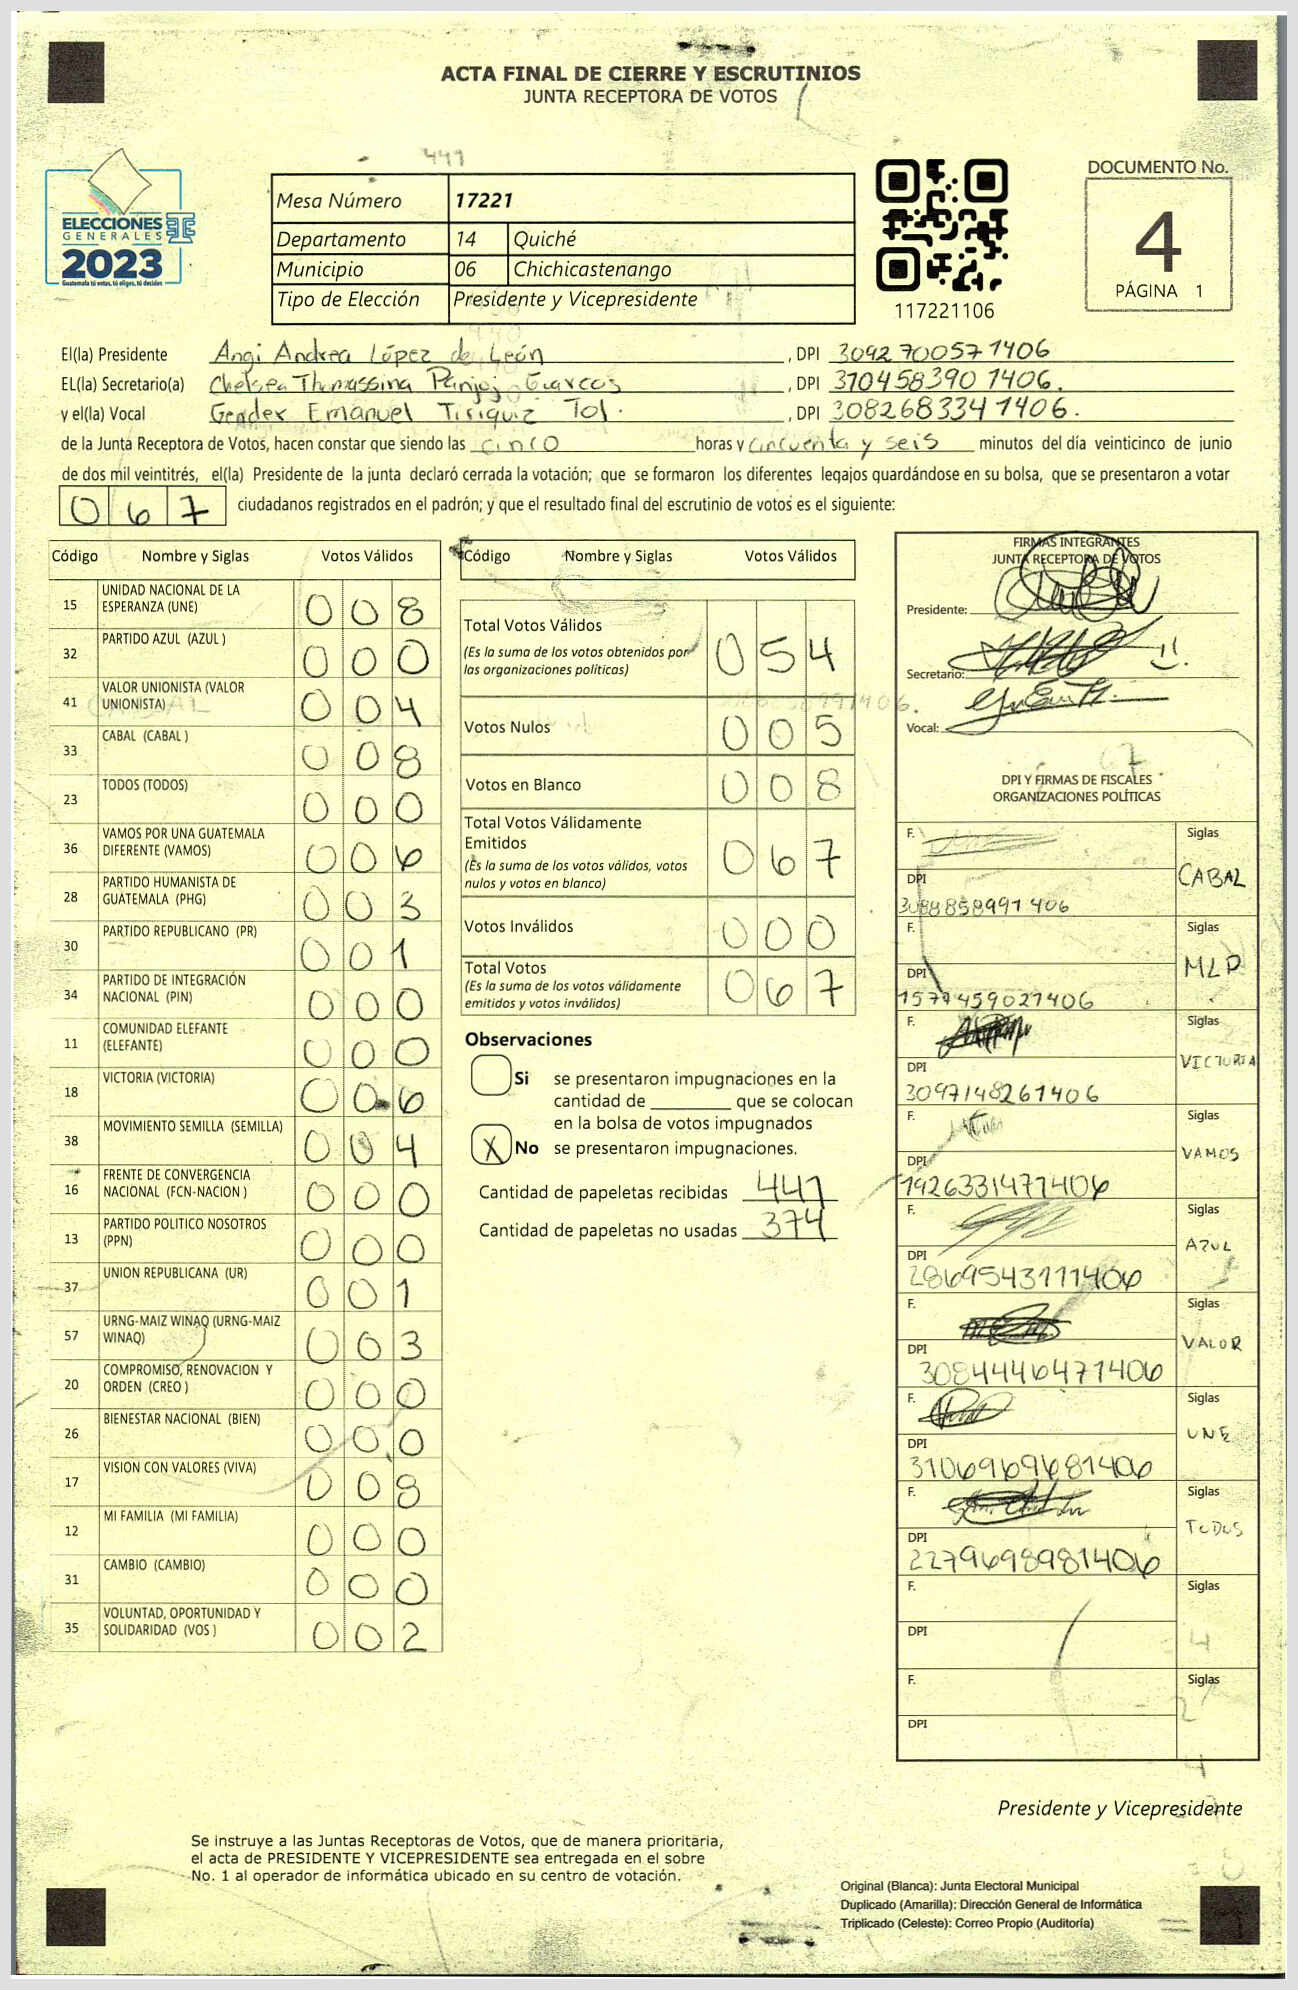 ACTA FINAL DE CIERRE Y ESCRUTINIOS
JUNTA RECEPTORA DE VOTOS
441
ELECCIONES
GENERALES
2023
Guatemala tú votas, tú eliges, tú decides
Mesa Número 17221
Departamento 14 Quiché
Municipio 06 Chichicastenango
Tipo de Elección Presidente y Vicepresidente
117221106
DOCUMENTO No.
4
PÁGINA 1
El(la) Presidente Angi Andrea López de León , DPI 3092700571406
EL(la) Secretario(a) Chelsea Thomassina Panjoj Garcos , DPI 3704583901406.
y el(la) Vocal Gender Emanuel Tiriquiz Tol. , DPI 3082683341406.
de la Junta Receptora de Votos, hacen constar que siendo las cinco horas y cincuenta y seis minutos del día veinticinco de junio
de dos mil veintitrés, el(la) Presidente de la junta declaró cerrada la votación; que se formaron los diferentes legajos guardándose en su bolsa, que se presentaron a votar
067 ciudadanos registrados en el padrón; y que el resultado final del escrutinio de votos es el siguiente:
Código Nombre y Siglas Votos Válidos
15 UNIDAD NACIONAL DE LA ESPERANZA (UNE) 008
32 PARTIDO AZUL (AZUL ) 000
41 VALOR UNIONISTA (VALOR UNIONISTA) 004
33 CABAL (CABAL ) 008
23 TODOS (TODOS) 000
36 VAMOS POR UNA GUATEMALA DIFERENTE (VAMOS) 006
28 PARTIDO HUMANISTA DE GUATEMALA (PHG) 003
30 PARTIDO REPUBLICANO (PR) 001
34 PARTIDO DE INTEGRACIÓN NACIONAL (PIN) 000
11 COMUNIDAD ELEFANTE (ELEFANTE) 000
18 VICTORIA (VICTORIA) 006
38 MOVIMIENTO SEMILLA (SEMILLA) 004
16 FRENTE DE CONVERGENCIA NACIONAL (FCN-NACION ) 000
13 PARTIDO POLITICO NOSOTROS (PPN) 000
37 UNION REPUBLICANA (UR) 001
57 URNG-MAIZ WINAQ (URNG-MAIZ WINAQ) 003
20 COMPROMISO, RENOVACION Y ORDEN (CREO ) 000
26 BIENESTAR NACIONAL (BIEN) 000
17 VISION CON VALORES (VIVA) 008
12 MI FAMILIA (MI FAMILIA) 000
31 CAMBIO (CAMBIO) 000
35 VOLUNTAD, OPORTUNIDAD Y SOLIDARIDAD (VOS ) 002
Código Nombre y Siglas Votos Válidos
Total Votos Válidos 054
(Es la suma de los votos obtenidos por
las organizaciones políticas)
Votos Nulos 005
Votos en Blanco 008
Total Votos Válidamente
Emitidos 067
(Es la suma de los votos válidos, votos
nulos y votos en blanco)
Votos Inválidos 000
Total Votos 067
(Es la suma de los votos válidamente
emitidos y votos inválidos)
Observaciones
Si se presentaron impugnaciones en la
cantidad de ________ que se colocan
en la bolsa de votos impugnados
X No se presentaron impugnaciones.
Cantidad de papeletas recibidas 441
Cantidad de papeletas no usadas 374
FIRMAS INTEGRANTES
JUNTA RECEPTORA DE VOTOS
Presidente:
Secretario:
Vocal:
67
DPI Y FIRMAS DE FISCALES
ORGANIZACIONES POLÍTICAS
F. Siglas
CABAL
DPI
3088858991406
F. Siglas
MLP
DPI
1577459021406
F. Siglas
VICTORIA
DPI
3097148261406
F. Siglas
VAMOS
DPI
1926331471406
F. Siglas
AZUL
DPI
2869543111406
F. Siglas
VALOR
DPI
3084446471406
F. Siglas
UNE
DPI
3106969681406
F. Siglas
TODOS
DPI
2279698981406
F. Siglas
DPI
F. Siglas
DPI
Presidente y Vicepresidente
Se instruye a las Juntas Receptoras de Votos, que de manera prioritaria,
el acta de PRESIDENTE Y VICEPRESIDENTE sea entregada en el sobre
No. 1 al operador de informática ubicado en su centro de votación.
Original (Blanca): Junta Electoral Municipal
Duplicado (Amarilla): Dirección General de Informática
Triplicado (Celeste): Correo Propio (Auditoría)